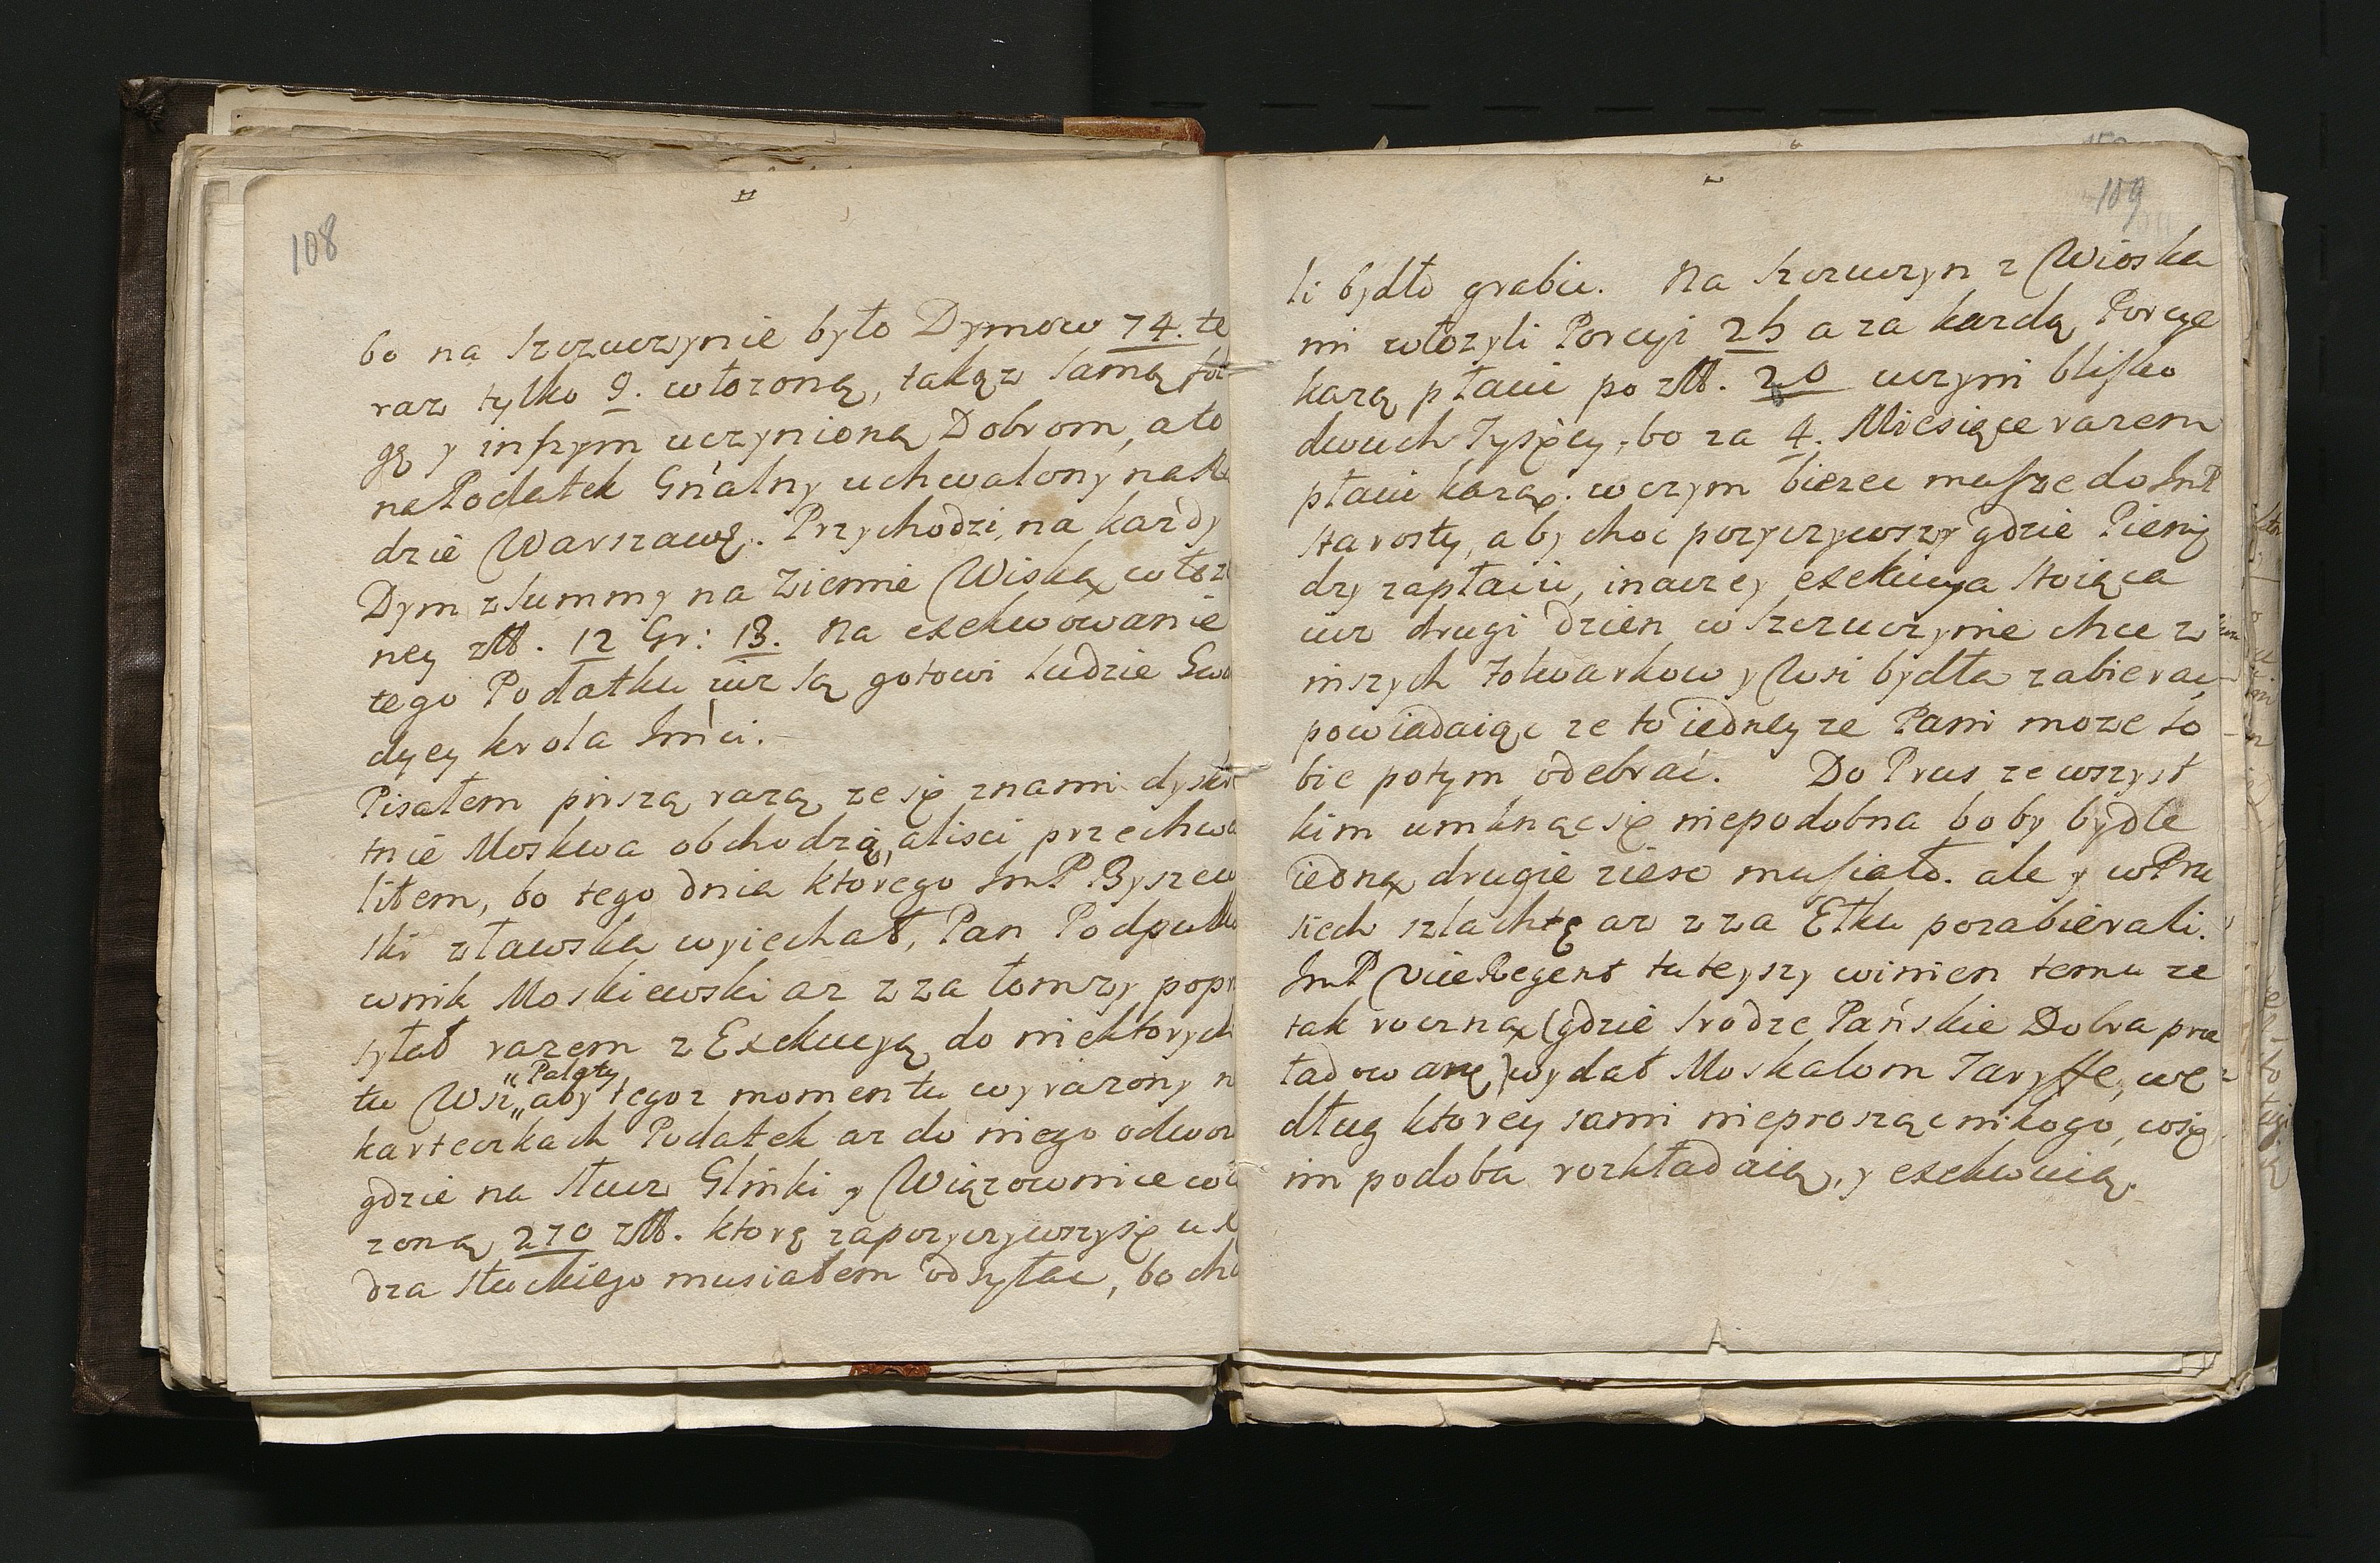 108
bo na Szczuczynie było Dymow 74. te
raz tylko 9. włozoną, takąz samą fol
gę y inszym uczynioną Dobrom, a to
na Podatek Gn̄alny uchwalony na Ra
dzie Warszaws. Przychodzi, na kazdy
Dym z summy na Ziemie Wiską włozo
ney zlł. 12 Gr: 13. Na exekwowanie
tego Podatku iuz są gotowi ludzie Gwar
dyey krola Jm̄ci.
Pisałem pirszą razą ze się z nami dyskre
tnie Moskwa obchodzą, alisci przechwa
liłem, bo tego dnia ktorego JmP. Byszew
ski z Ławska wyiechał, Pan Podpułko
wnik Moskiewski az z za Łomzy poprzy
syłał razem z Exekucyą do niektorych
tu Wsi, aby tegoz momentu wyrazony n
" Palaty
karteczkach Podatek az do niego odwozi
gdzie na Stucz Glinki y Wiązownice wło
zoną 270 zlł. ktorę zapozyczywszy się u X
dza Stuckiego musiałem odsyłac, bo chc
109
li bydło grabic. Na Szczuczyn z Wioska
mi włozyli Porcyi 25 a za kazdą Porcye
kazą płacic po zlł. 20 uczyni blisko
dwuch Tysięcy, bo za 4. Miesiące razem
płacic kazą. w czym biezec musze do JmP
Starosty, aby choc pozyczywszy gdzie Pienię
dzy zapłacic, inaczey exekucya stoiąca
iuz drugi dzien w Szczuczynie chce z
inszych Folwarkow y Wsi bydła zabierac
powiadaiąc ze to iedneyze Pani moze so
bie potym odebrać. Do Prus ze wszyst
kim umknąc się niepodobna boby bydle
iedną drugie ziesc musiało. ale y w Pru
siech szlachtę az z za Ełku pozabierali.
JmP ViceRegent tuteyszy winien temu ze
tak roczną (gdzie srodze Pańskie Dobra prze
ładowane) wydał Moskalom Taryffe, we
dług ktorey sami nieprosząc nikogo, co się
im podoba rozkładaią, y exekwuią.